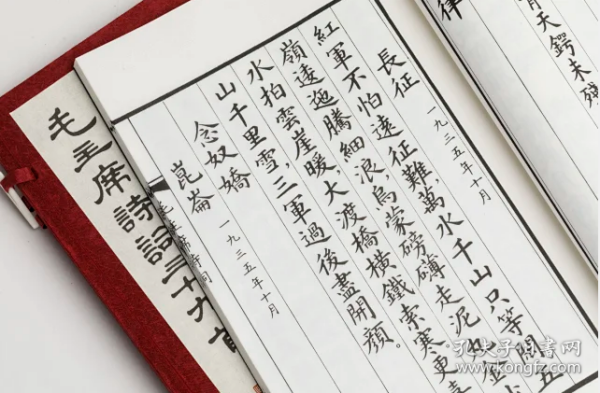 天鍔未殘
律
長征
一九三五年十月
紅軍不怕遠征難,萬水千山只等閒五
嶺逶迤騰細浪,烏蒙磅礴走泥丸金
水拍雲崖暖,大渡橋橫鐵索寒更喜
山千里雪,三軍過後盡開顏。
念奴嬌
崑崙
一九三五年十月
毛主席詩詞三十九首
孔夫子旧书网
www.kongfz.com